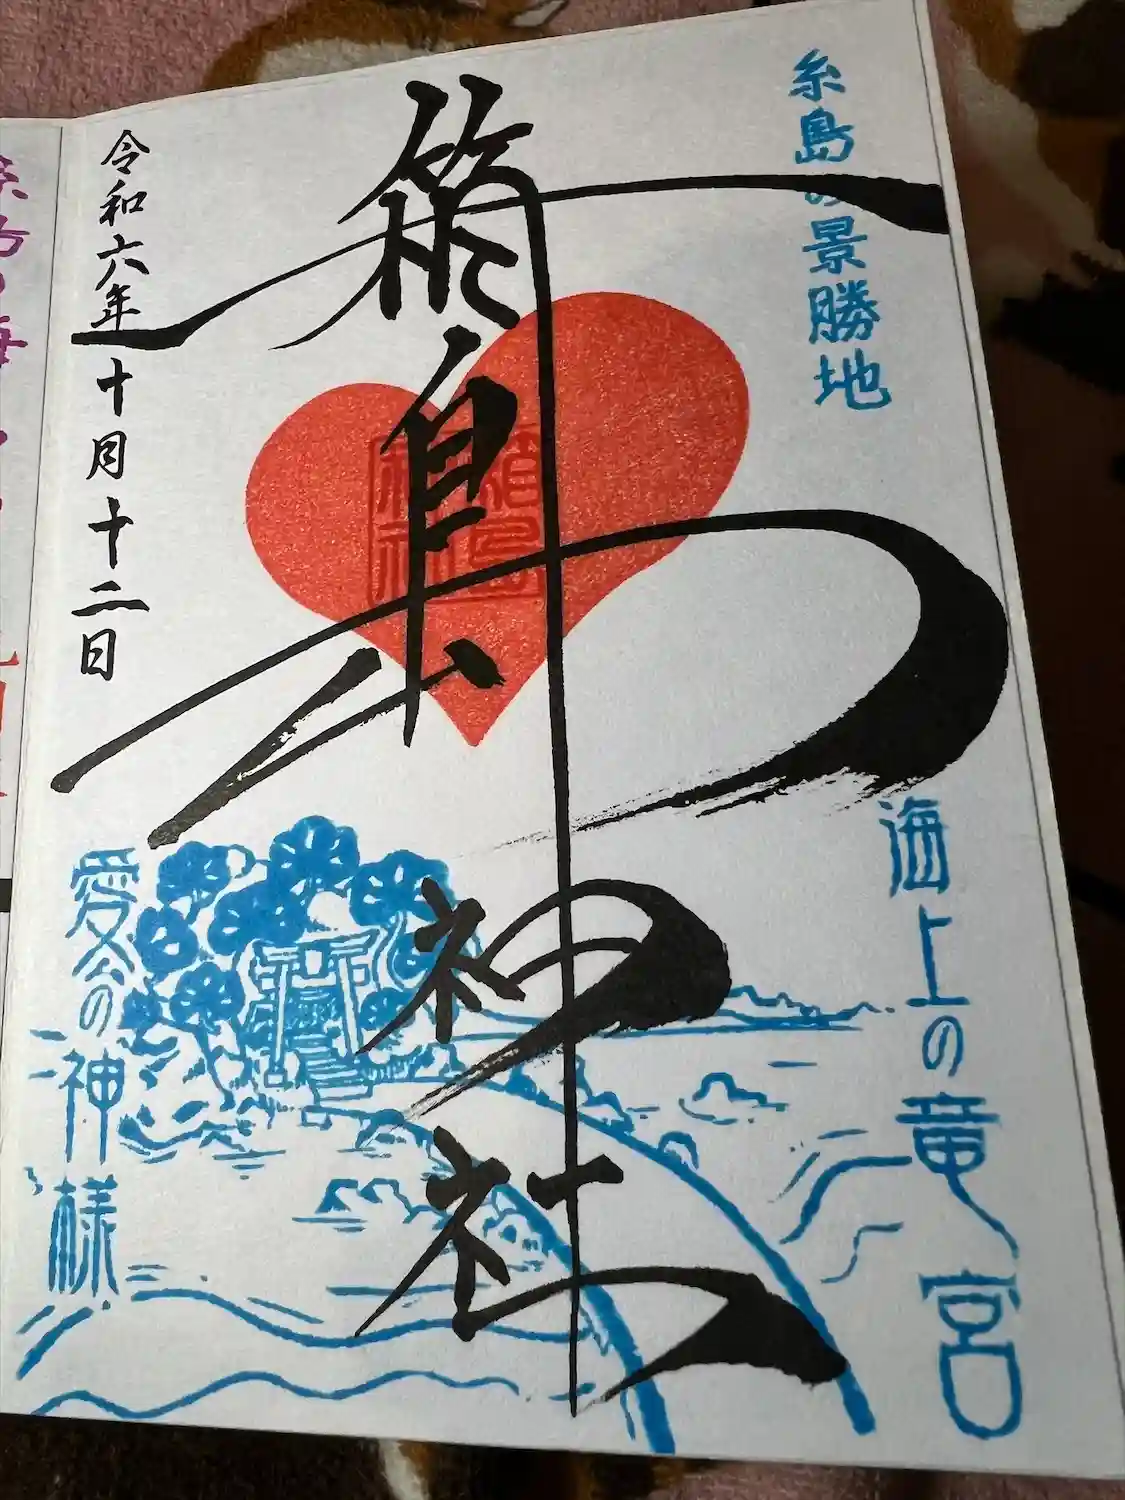 糸島の景勝地
海上の竜宮
箱島神社
愛の神様
令和六年十月十二日